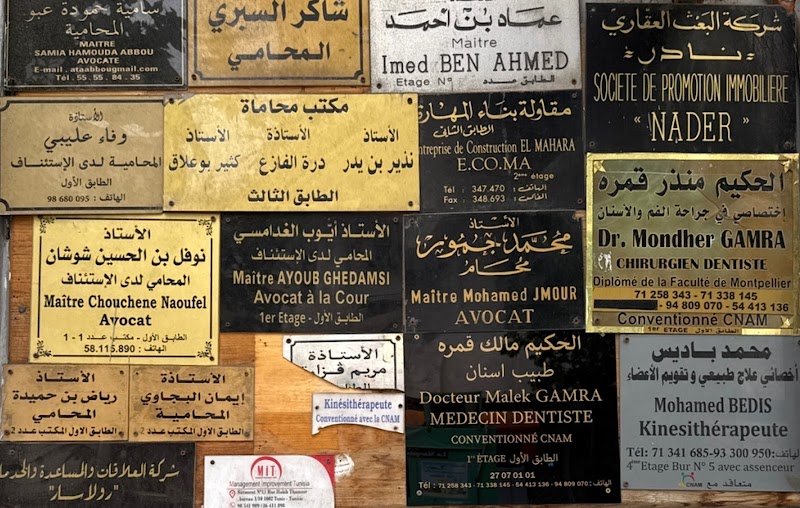 سامية حمودة عبو
المحامية
MAITRE
SAMIA HAMOUDA ABBOU
AVOCATE
E-mail . ataabbou@gmail.com
Tél . 55 . 55 . 84 . 35
شاكر السبري
المحامي
عماد بن أحمد
Maître
Imed BEN AHMED
Etage N° الطابق عدد
شركة البعث العقاري
نادر
SOCIETE DE PROMOTION IMMOBILIERE
" NADER "
الأستاذة
وفاء عليبي
المحامية لدى الإستئناف
الطابق الأول
الهاتف : 98 680 095
مكتب محاماة
الأستاذ
نذير بن يدر
الأستاذة
درة الفازع
الأستاذ
كثير بوعلاق
الطابق الثالث
مقاولة بناء المهارة
الطابق الثاني
Entreprise de Construction EL MAHARA
E.CO.MA
2ème étage
Tél : 347.470 الهاتف :
Fax : 348.693 الفاكس :
الحكيم منذر قمره
اختصاصي في جراحة الفم والأسنان
Dr. Mondher GAMRA
CHIRURGIEN DENTISTE
Diplômé de la Faculté de Montpellier
71 258 343 - 71 338 145
- 94 809 070 - 54 413 136
Conventionné CNAM
1er ETAGE الطابق الأول
الأستاذ
نوفل بن الحسين شوشان
المحامي لدى الإستئناف
Maître Chouchene Naoufel
Avocat
الطابق الأول - مكتب عدد 1 - 1
الهاتف : 58.115.890
الأستاذ أيوب الغدامسي
المحامي لدى الإستئناف
Maitre AYOUB GHEDAMSI
Avocat à la Cour
1er Etage - الطابق الأول
الاستاذ
محمد جمور
محام
Maître Mohamed JMOUR
AVOCAT
الأستاذ
رياض بن حميدة
المحامي
الطابق الاول المكتب عدد 2
الأستاذة
إيمان البجاوي
المحامية
الطابق الاول المكتب عدد 2
الأستاذة
مريم
Kinésithérapeute
Conventionné avec la CNAM
الحكيم مالك قمره
طبيب اسنان
Docteur Malek GAMRA
MEDECIN DENTISTE
CONVENTIONNÉ CNAM
1er ÉTAGE الطابق الأول
27 07 01 01
Tél : 71 258 343 - 71 338 145 - 54 413 136 - 94 809 070 : الهاتف
محمد باديس
أخصائي علاج طبيعي و تقويم الأعضاء
Mohamed BEDIS
Kinesithérapeute
Tél: 71 341 685-93 300 950 :الهاتف
4ème Etage Bur N° 5 avec assenceur
CNAM متعاقد مع
شركة العلاقات والمساعدة والخدمات
MIT
Management Improvement Tunisia